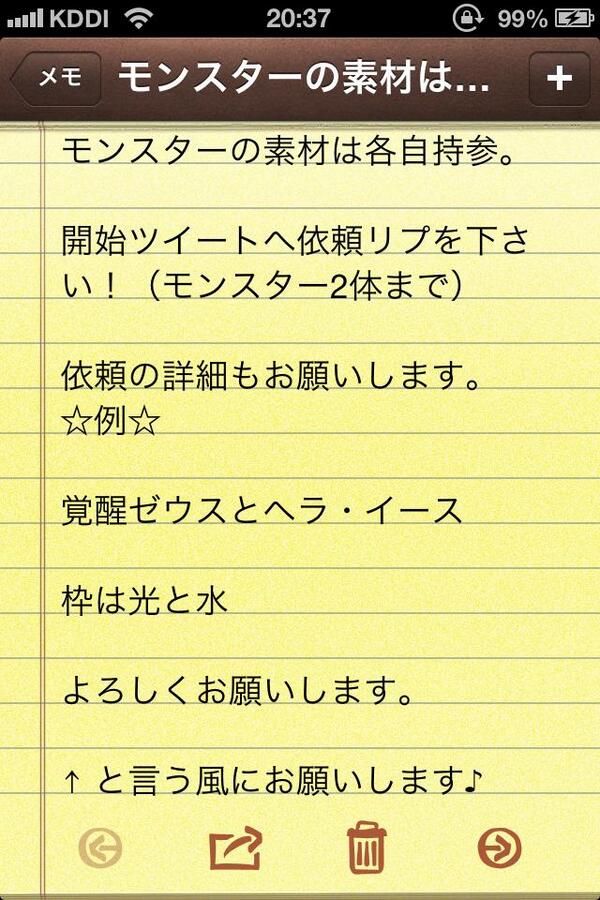 KDDI 20:37 99%
メモ モンスターの素材は... +
モンスターの素材は各自持参。
開始ツイートへ依頼リプを下さ
い！（モンスター2体まで）
依頼の詳細もお願いします。
☆例☆
覚醒ゼウスとヘラ・イース
枠は光と水
よろしくお願いします。
↑ と言う風にお願いします♪